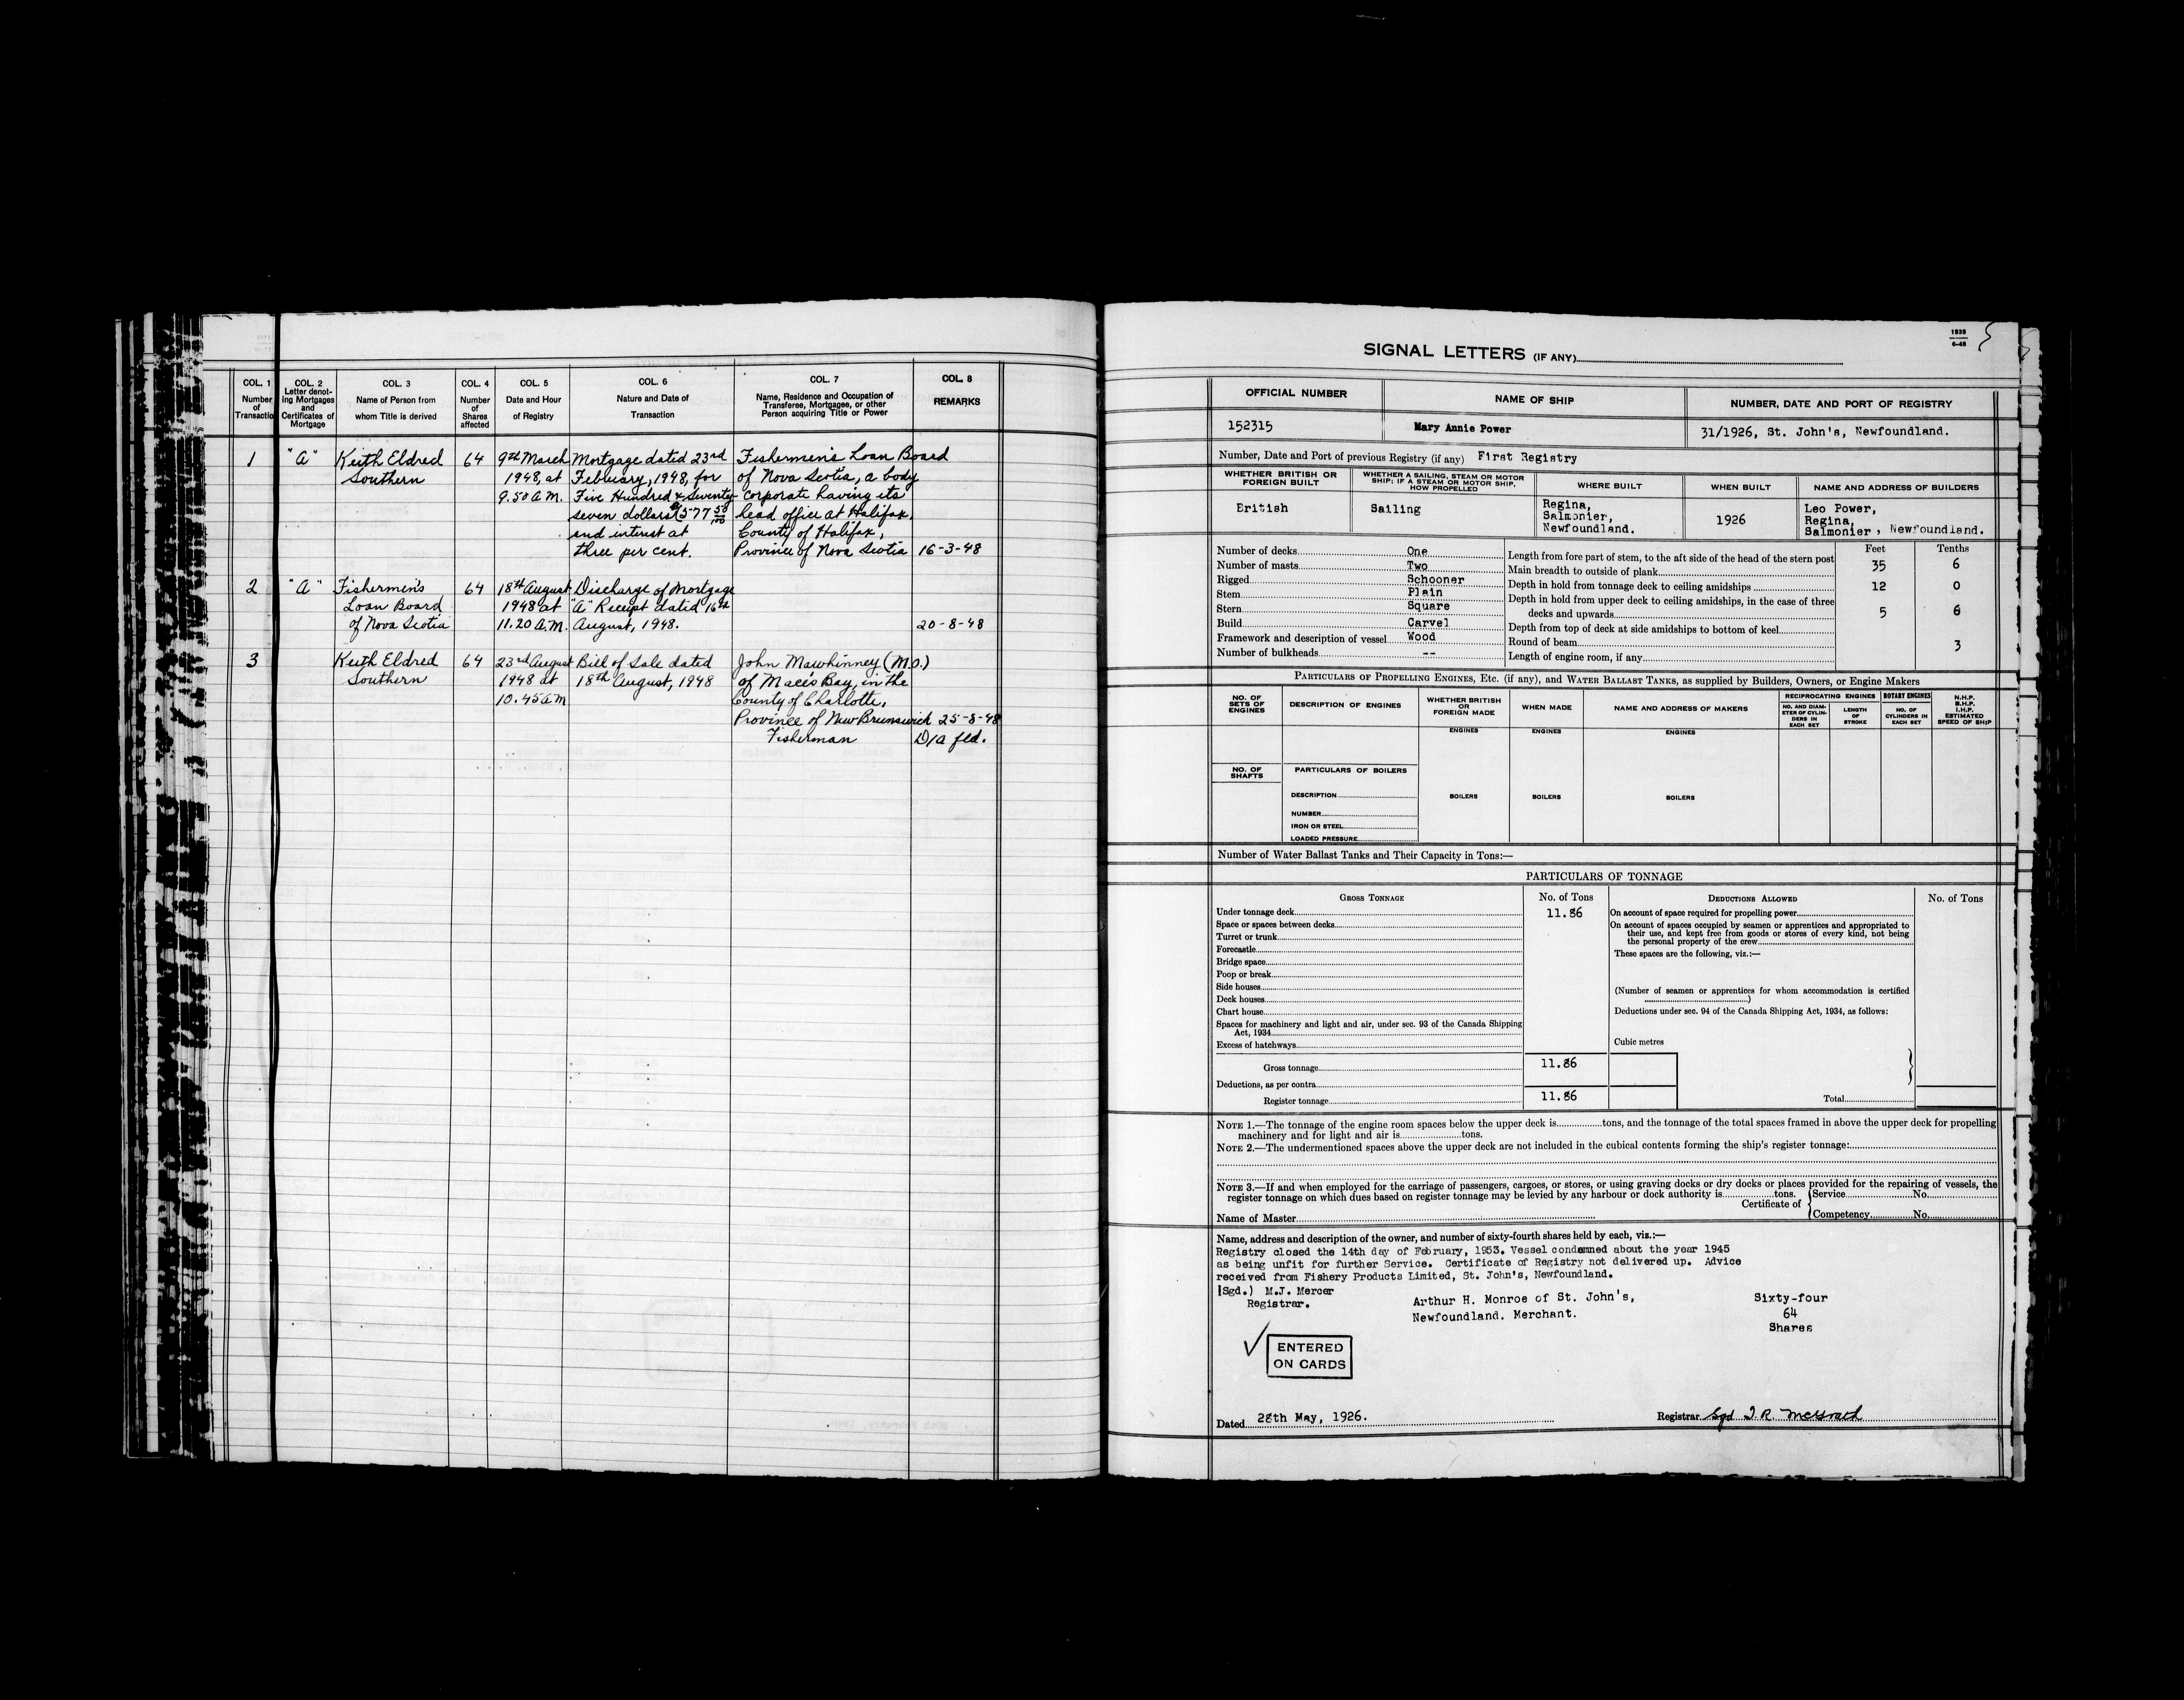 COL. 1
Number
of
Transactio
COL. 2
Letter denot-
ing Mortgages
and
Certificates of
Mortgage
COL. 3
Name of Person from
whom Title is derived
COL. 4
Number
of
Shares
affected
COL. 5
Date and Hour
of Registry
COL. 6
Nature and Date of
Transaction
COL. 7
Name, Residence and Occupation of
Transferee, Mortgagee, or other
Person acquiring Title or Power
COL. 8
REMARKS
1 "A" Keith Eldred 64 9th March Mortgage dated 23rd Fishermen's Loan Board
Southern 1948, at February, 1948, for of Nova Scotia, a body
9.50 A.M. Five Hundred & Seventy- corporate having its
seven dollars (577 50/100 head office at Halifax,
and interest at County of Halifax,
three per cent. Province of Nova Scotia 16-3-48
2 "A" Fishermen's 64 18th August Discharge of Mortgage
Loan Board 1948 at "A" Receipt dated 16th
of Nova Scotia 11.20 A.M. August, 1948. 20-8-48
3 Keith Eldred 64 23rd August Bill of Sale dated John Mawhinney (M.O.)
Southern 1948 at 18th August, 1948 of Maces Bay, in the
10.45 a m County of Charlotte,
Province of New Brunswick 25-8-48
Fisherman D/a fld.
1535
6-45
SIGNAL LETTERS (IF ANY)
OFFICIAL NUMBER NAME OF SHIP NUMBER, DATE AND PORT OF REGISTRY
152315 Mary Annie Power 31/1926, St. John's, Newfoundland.
Number, Date and Port of previous Registry (if any) First Registry
WHETHER BRITISH OR
FOREIGN BUILT
WHETHER A SAILING, STEAM OR MOTOR
SHIP; IF A STEAM OR MOTOR SHIP,
HOW PROPELLED
WHERE BUILT
WHEN BUILT
NAME AND ADDRESS OF BUILDERS
British
Sailing
Regina,
Salmonier,
Newfoundland.
1926
Leo Power,
Regina,
Salmonier, Newfoundland.
Number of decks One
Number of masts Two
Rigged Schooner
Stem Plain
Stern Square
Build Carvel
Framework and description of vessel Wood
Number of bulkheads --
Feet Tenths
Length from fore part of stem, to the aft side of the head of the stern post 35 6
Main breadth to outside of plank 12 0
Depth in hold from tonnage deck to ceiling amidships 5 6
Depth in hold from upper deck to ceiling amidships, in the case of three
decks and upwards
Depth from top of deck at side amidships to bottom of keel
Round of beam 3
Length of engine room, if any
PARTICULARS OF PROPELLING ENGINES, ETC. (if any), and WATER BALLAST TANKS, as supplied by Builders, Owners, or Engine Makers
NO. OF
SETS OF
ENGINES
DESCRIPTION OF ENGINES
WHETHER BRITISH
OR
FOREIGN MADE
WHEN MADE
NAME AND ADDRESS OF MAKERS
RECIPROCATING ENGINES
NO. AND DIAM-
ETER OF CYLIN-
DERS IN
EACH SET
LENGTH
OF
STROKE
ROTARY ENGINES
NO. OF
CYLINDERS IN
EACH SET
N.H.P.
B.H.P.
I.H.P.
ESTIMATED
SPEED OF SHIP
ENGINES ENGINES ENGINES
NO. OF
SHAFTS
PARTICULARS OF BOILERS
DESCRIPTION
BOILERS BOILERS BOILERS
NUMBER
IRON OR STEEL
LOADED PRESSURE
Number of Water Ballast Tanks and Their Capacity in Tons:—
PARTICULARS OF TONNAGE
GROSS TONNAGE No. of Tons
Under tonnage deck 11.86
Space or spaces between decks
Turret or trunk
Forecastle
Bridge space
Poop or break
Side houses
Deck houses
Chart house
Spaces for machinery and light and air, under sec. 93 of the Canada Shipping
Act, 1934
Excess of hatchways
Gross tonnage 11.86
Deductions, as per contra
Register tonnage 11.86
DEDUCTIONS ALLOWED No. of Tons
On account of space required for propelling power
On account of spaces occupied by seamen or apprentices and appropriated to
their use, and kept free from goods or stores of every kind, not being
the personal property of the crew
These spaces are the following, viz.:—
(Number of seamen or apprentices for whom accommodation is certified
)
Deductions under sec. 94 of the Canada Shipping Act, 1934, as follows:
Cubic metres
Total
NOTE 1.—The tonnage of the engine room spaces below the upper deck is tons, and the tonnage of the total spaces framed in above the upper deck for propelling
machinery and for light and air is tons.
NOTE 2.—The undermentioned spaces above the upper deck are not included in the cubical contents forming the ship's register tonnage:
NOTE 3.—If and when employed for the carriage of passengers, cargoes, or stores, or using graving docks or dry docks or places provided for the repairing of vessels, the
register tonnage on which dues based on register tonnage may be levied by any harbour or dock authority is tons.
Certificate of
Service No.
Competency No.
Name of Master
Name, address and description of the owner, and number of sixty-fourth shares held by each, viz.:—
Registry closed the 14th day of February, 1953. Vessel condemned about the year 1945
as being unfit for further Service. Certificate of Registry not delivered up. Advice
received from Fishery Products Limited, St. John's, Newfoundland.
(Sgd.) M.J. Mercer
Registrar.
Arthur H. Monroe of St. John's,
Newfoundland. Merchant.
Sixty-four
64
Shares
ENTERED
ON CARDS
Dated 28th May, 1926.
Registrar Sgd J. R. McGrath